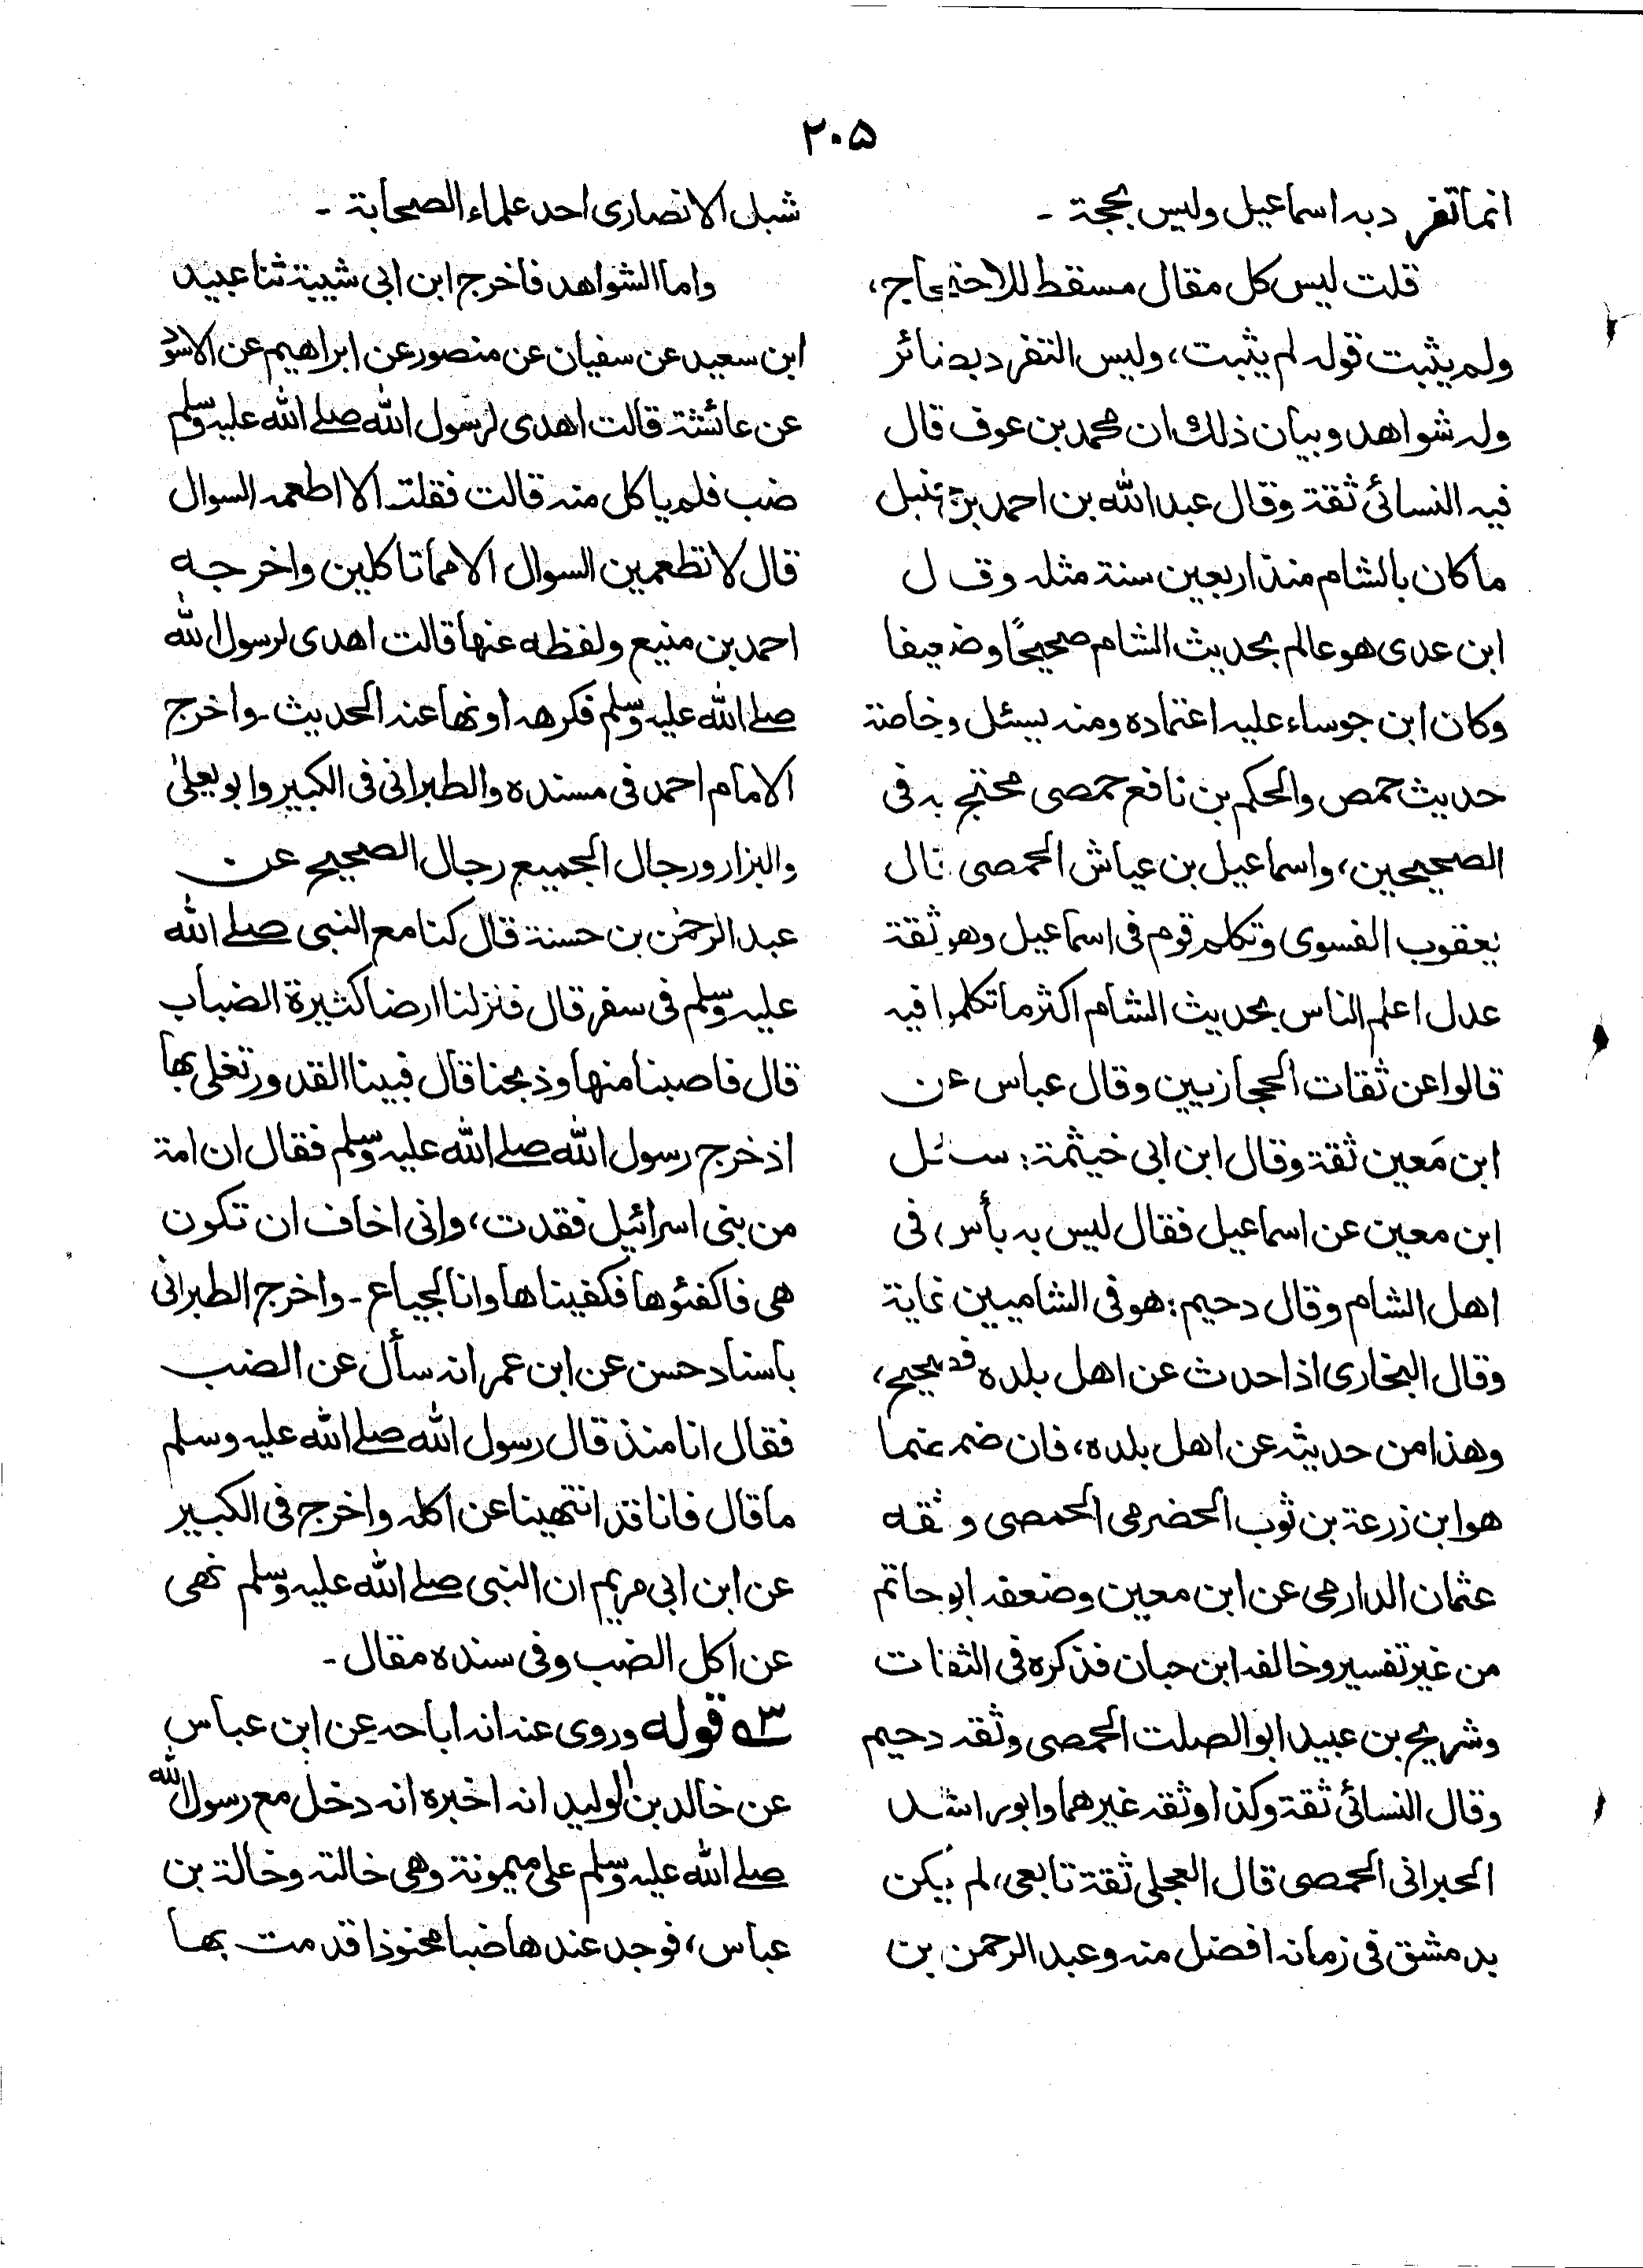 ٢٠٥
انما تفرد به اسماعيل وليس بحجة -
قلت ليس كل مقال مسقط للاحتجاج،
ولم يثبت قوله لم يثبت، وليس التفرد به ضائر
وله شواهد وبيان ذلك ان محمد بن عوف قال
فيه النسائى ثقة وقال عبد الله بن احمد بن حنبل
ما كان بالشام منذ اربعين سنة مثله وقال
ابن عدى هو عالم بحديث الشام صحيحًا وضعيفا
وكان ابن جوساء عليه اعتماده ومنه يسئل وخاصة
حديث حمص والحكم بن نافع حمصى محتج به فى
الصحيحين، واسماعيل بن عياش الحمصى قال
يعقوب الفسوى وتكلم قوم فى اسماعيل وهو ثقة
عدل اعلم الناس بحديث الشام اكثر ما تكلموا فيه
قالوا عن ثقات الحجازيين وقال عباس عن
ابن مَعين ثقة وقال ابن ابى خيثمة: سئل
ابن معين عن اسماعيل فقال ليس به بأس، فى
اهل الشام وقال دحيم: هو فى الشاميين غاية
وقال البخارى اذا حدث عن اهل بلده فصحيح،
وهذا من حديثه عن اهل بلده، فان ضمضما
هو ابن زرعة بن ثوب الحضرمى الحمصى وثقه
عثمان الدارمى عن ابن معين وضعفه ابو حاتم
من غير تفسير وخالفه ابن حبان فذكره فى الثقات
وشريح بن عبيد ابو الصلت الحمصى وثقه دحيم
وقال النسائى ثقة وكذا وثقه غيرهما وابو راشد
الحبرانى الحمصى قال العجلى ثقة تابعى، لم يكن
بدمشق فى زمانه افضل منه وعبد الرحمن بن
شبل الانصارى احد علماء الصحابة -
واما الشواهد فاخرج ابن ابى شيبة ثنا عبيد
ابن سعيد عن سفيان عن منصور عن ابراهيم عن الاسود
عن عائشة قالت اهدى لرسول الله صلے الله عليه وسلم
ضب فلم ياكل منه قالت فقلت الا اطعمه السوال
قال لا تطعمين السوال الا مما تاكلين واخرجه
احمد بن منيع ولفظه عنها قالت اهدى لرسول الله
صلے الله عليه وسلم فكرهه او نها عنه الحديث - واخرج
الامام احمد فى مسنده والطبرانى فى الكبير وابو يعلىٰ
والبزار ورجال الجميع رجال الصحيح عن
عبد الرحمٰن بن حسنة قال كنا مع النبى صلے الله
عليه وسلم فى سفر قال فنزلنا ارضا كثيرة الضباب
قال فاصبنا منها وذبحنا قال فبينا القدور تغلى بها
اذ خرج رسول الله صلے الله عليه وسلم فقال ان امة
من بنى اسرائيل فقدت، وانى اخاف ان تكون
هى فاكفئوها فكفيناها وانا لجياع - واخرج الطبرانى
باسناد حسن عن ابن عمر انه سأل عن الضب
فقال انا منذ قال رسول الله صلے الله عليه وسلم
ما قال فانا قد انتهينا عن اكله واخرج فى الكبير
عن ابن ابى مريم ان النبى صلے الله عليه وسلم نهى
عن اكل الضب وفى سنده مقال -
٣ے قوله وروى عنه انه اباحه عن ابن عباس
عن خالد بن الوليد انه اخبره انه دخل مع رسول الله
صلے الله عليه وسلم على ميمونة وهى خالته وخالة بن
عباس، فوجد عندها ضبا محنوذا قدمت بها